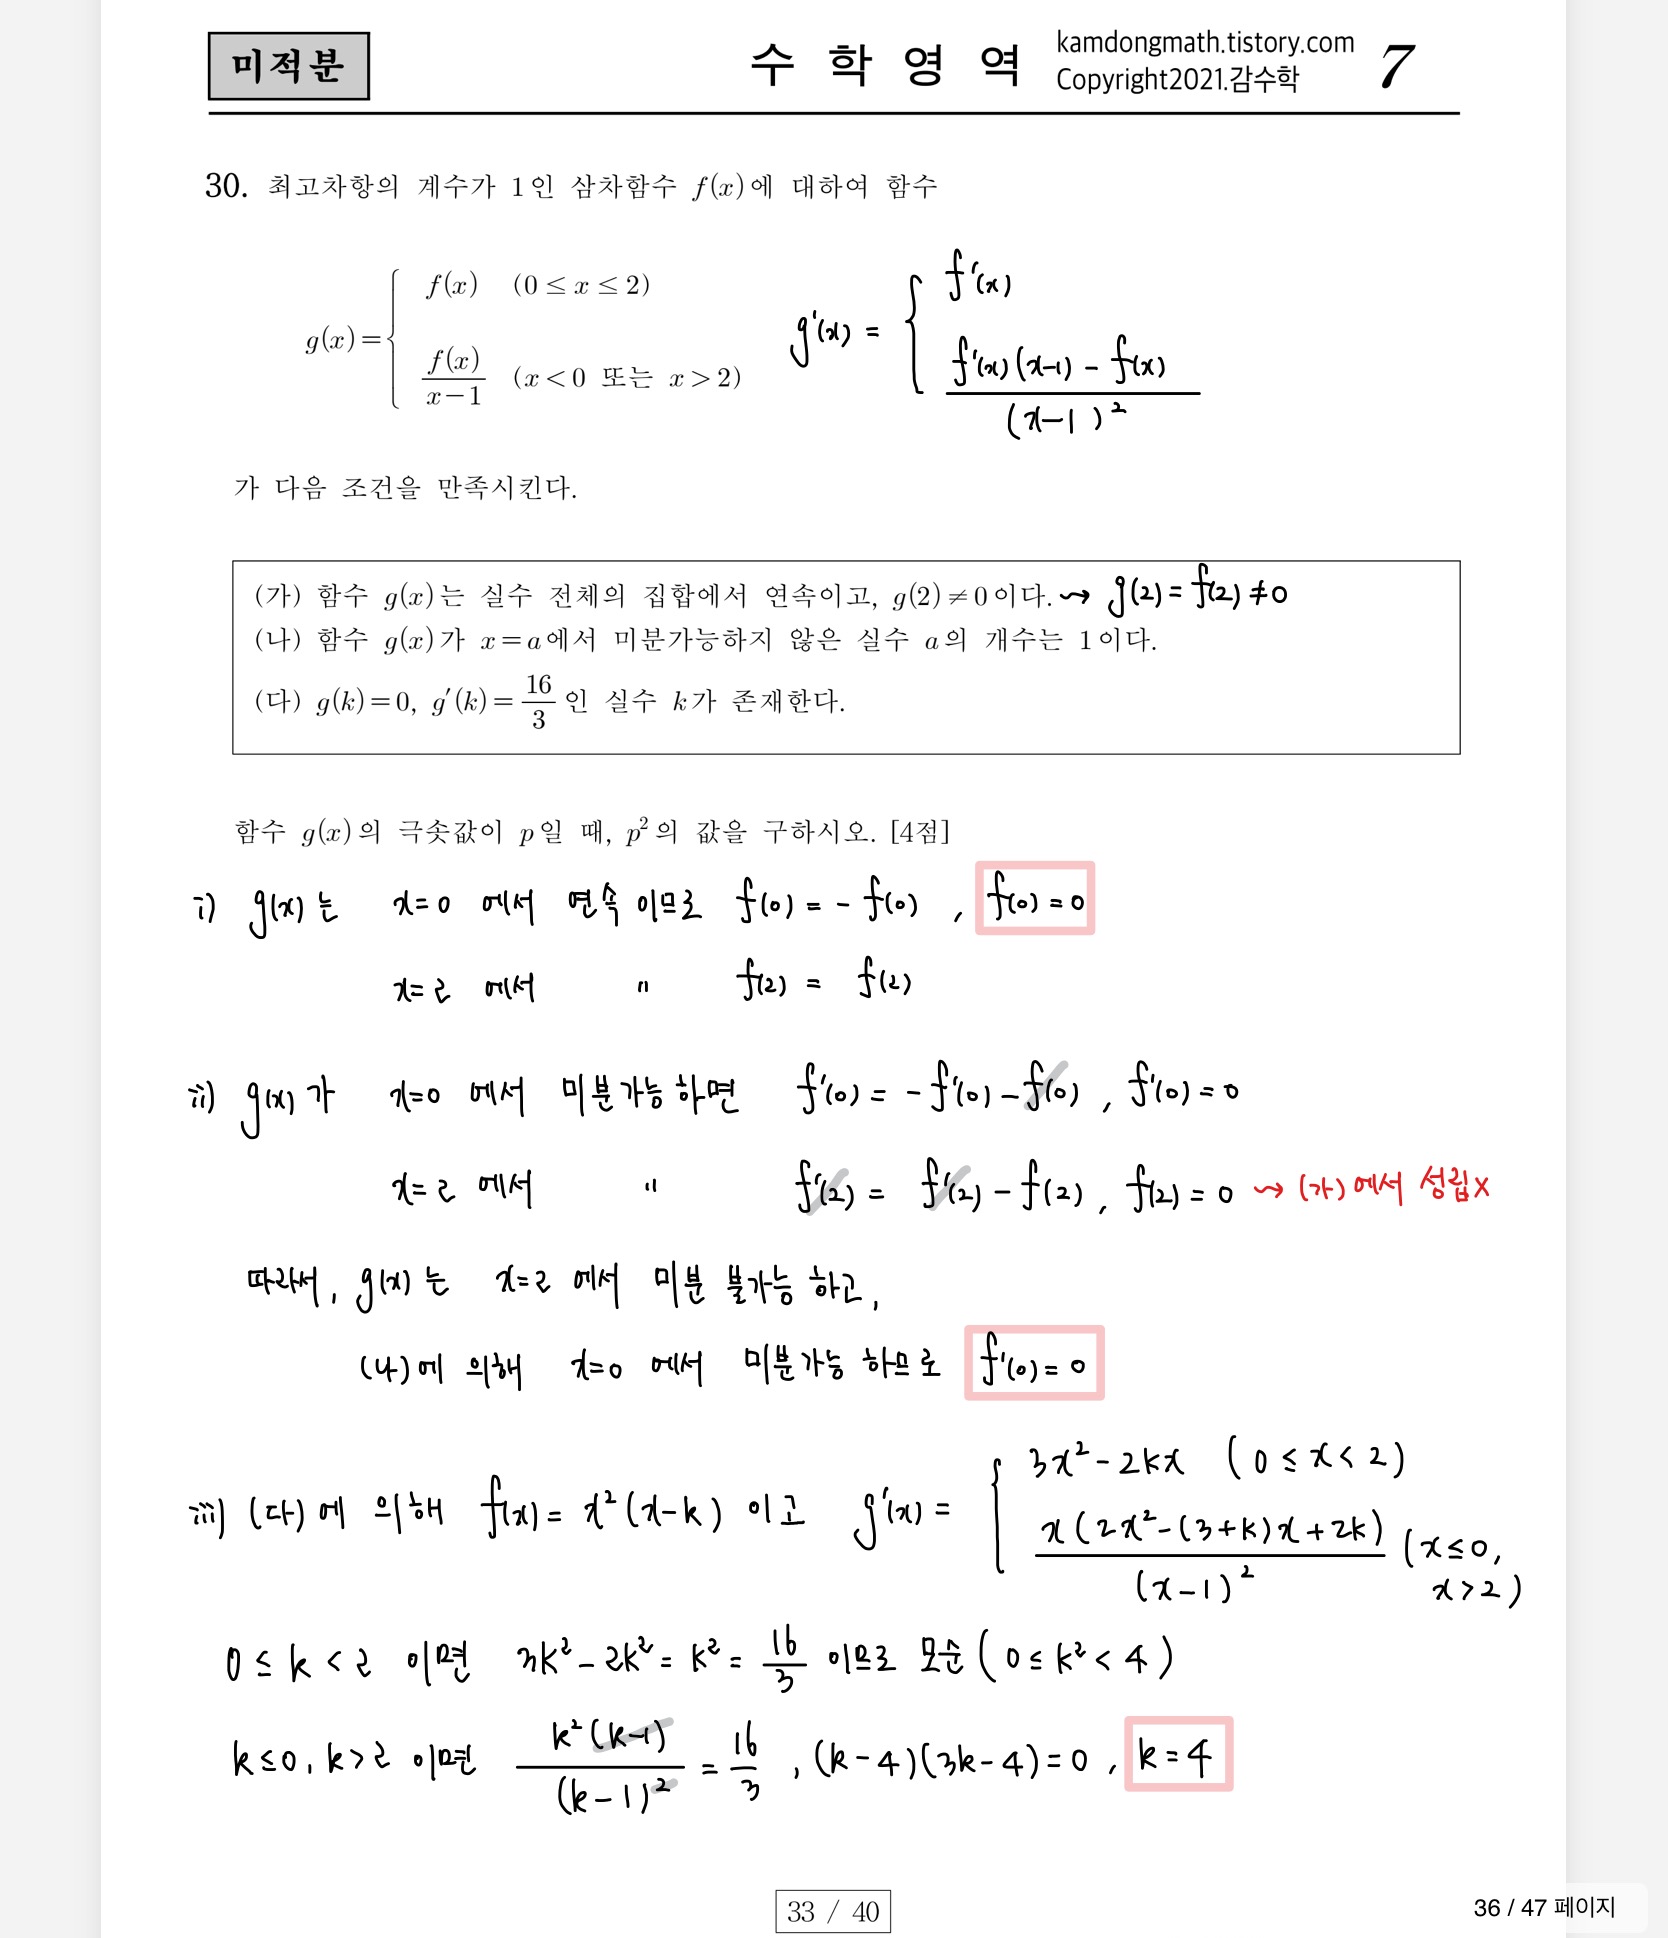 미적분
수 학 영 역
kamdongmath.tistory.com
Copyright2021.감수학
7
30. 최고차항의 계수가 1인 삼차함수 f(x)에 대하여 함수
g(x)={ f(x) (0≤x≤2)
f(x)/(x-1) (x<0 또는 x>2)
g'(x) = { f'(x)
(f'(x)(x-1) - f(x))/(x-1)²
가 다음 조건을 만족시킨다.
(가) 함수 g(x)는 실수 전체의 집합에서 연속이고, g(2)≠0이다. ⇝ g(2) = f(2) ≠0
(나) 함수 g(x)가 x=a에서 미분가능하지 않은 실수 a의 개수는 1이다.
(다) g(k)=0, g'(k)=16/3인 실수 k가 존재한다.
함수 g(x)의 극솟값이 p일 때, p²의 값을 구하시오. [4점]
i) g(x)는 x=0 에서 연속이므로 f(0) = - f(0) , f(0) = 0
x=2 에서 〃 f(2) = f(2)
ii) g(x)가 x=0 에서 미분가능하면 f'(0) = - f'(0) - f(0) , f'(0) = 0
x=2 에서 〃 f'(2) = f'(2) - f(2) , f(2) = 0 ⇝ (가)에서 성립x
따라서, g(x)는 x=2 에서 미분 불가능 하고,
(나)에 의해 x=0 에서 미분가능 하므로 f'(0) = 0
iii) (다)에 의해 f(x) = x²(x-k) 이고 g'(x) = { 3x²-2kx (0≤x<2)
x(2x²-(3+k)x+2k)/(x-1)² (x≤0, x>2)
0≤k<2 이면 3k²-2k²=k²=16/3 이므로 모순(0≤k²<4)
k≤0, k>2 이면 k²(k-1)/(k-1)² = 16/3 , (k-4)(3k-4)=0 , k=4
33 / 40
36 / 47 페이지